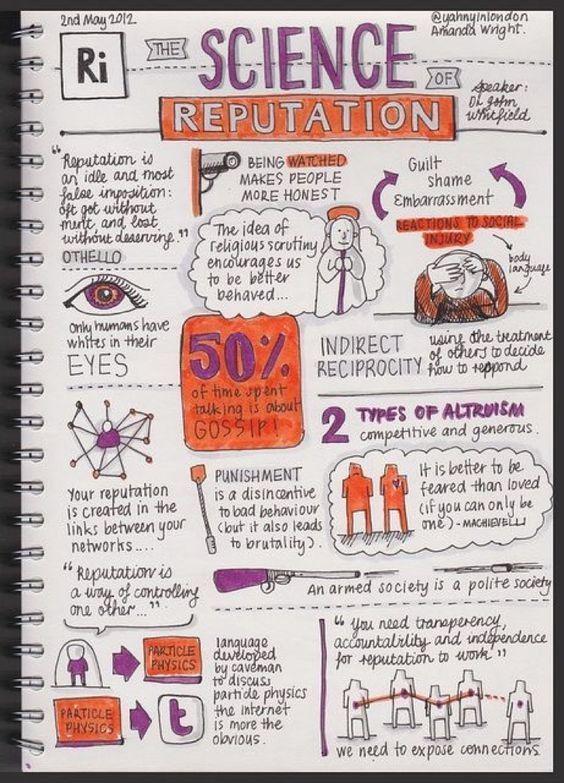 2nd May 2012
@yahnyinlondon
Amanda Wright.
Ri
THE
SCIENCE
OF
REPUTATION
Speaker:
Dr John
Whitfield
"Reputation is
an idle and most
false imposition:
oft got without
merit, and lost
without deserving."
OTHELLO
BEING WATCHED
MAKES PEOPLE
MORE HONEST
Guilt
shame
Embarrassment
REACTIONS TO SOCIAL
INJURY
body
language
The idea of
religious scrutiny
encourages us
to be better
behaved...
only humans have
whites in their
EYES
50%
of time spent
talking is about
GOSSIP!
INDIRECT
RECIPROCITY
using the treatment
of others to decide
how to respond
2 TYPES OF ALTRUISM
competitive and generous.
Your reputation
is created in the
links between your
networks....
PUNISHMENT
is a disincentive
to bad behaviour
(but it also leads
to brutality).
It is better to be
feared than loved
(if you can only be
one) - MACHIEVELLI
"Reputation is
a way of controlling
one other..."
An armed society is a polite society
PARTICLE
PHYSICS
PARTICLE
PHYSICS
t
language
developed
by caveman
to discuss
particle physics
the internet
is more the
obvious.
"You need transparency,
accountability and independence
for reputation to work"
we need to expose connections